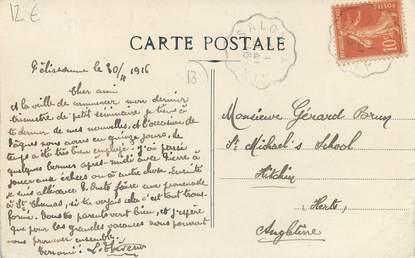 12 €
SALON
CARTE POSTALE
POSTES
10
Pélissanne le 30/4 1916
13
Cher ami
A la veille de commencer mon dernier
trimestre de petit séminaire je tiens à
te donner de mes nouvelles, à l'occasion de
Pâques nous avons eu quinze jours, le
temps a été très bien employé. J'ai passé
quelques bonnes après-midi avec Pierre à
jouer aux échecs ou à autre chose. Ensuite
je suis allé avec faire une promenade
à St Chamas, si tu voyais cela c'est tout trans-
formé. Tous tes parents vont bien, et j'espère
que pour les grandes vacances nous pourrons
nous promener ensemble.
Ton ami
Monsieur Gérard Brun
St Michael's School
Hitchin
Herts
Angleterre